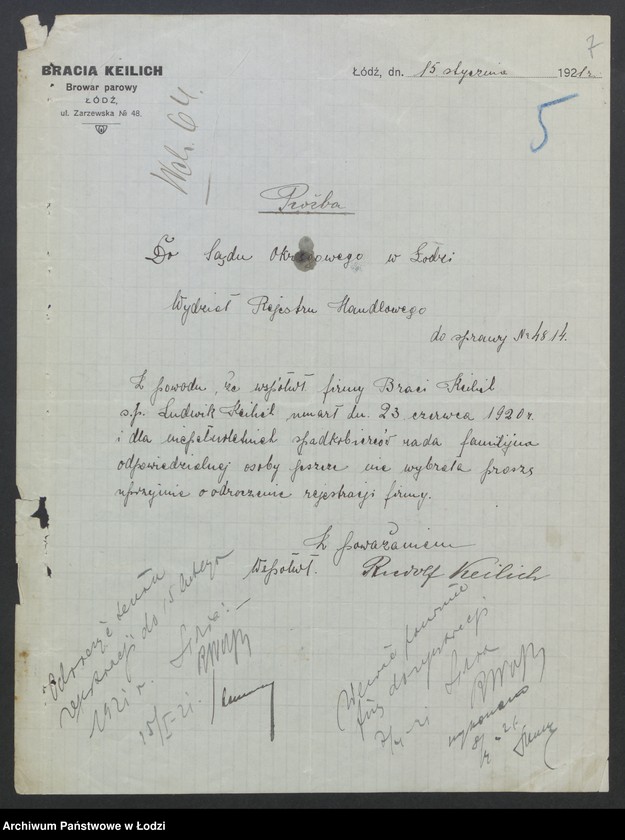 7
BRACIA KEILICH
Browar parowy
ŁÓDŹ,
ul. Zarzewska № 48.
Łódź, dn. 15 stycznia 1921 r.
5
Prośba
Do Sądu Okręgowego w Łodzi
Wydział Rejestru Handlowego
do sprawy № 4814.
Z powodu, że współwł. firmy Braci Keilich
ś.p. Ludwik Keilich umarł dn. 23 czerwca 1920 r.
i dla niepełnoletnich spadkobierców rada familijna
odpowiedzialnej osoby jeszcze nie wybrała proszę
uprzejmie o odroczenie rejestracji firmy.
Z poważaniem
Współwł. Rudolf Keilich
Odroczyć termin
rejestracji do 15 lutego
1921 r.
15/I-21.
wykonano
Archiwum Państwowe w Łodzi